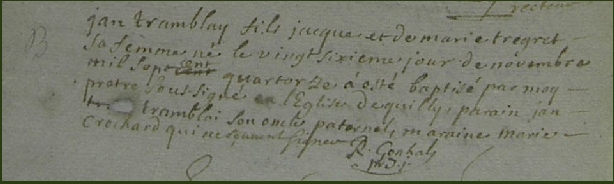 recteur
B
jan tramblay fils jacque et de marie tregret
sa femme né le vingt sixieme jour de novembre
mil sept cent quartorze à esté baptisé par moy
pretre soussigné en l'Eglise de quilly parain jan
tramblai son oncle paternel maraine marie
Crochard qui ne sçavent signer